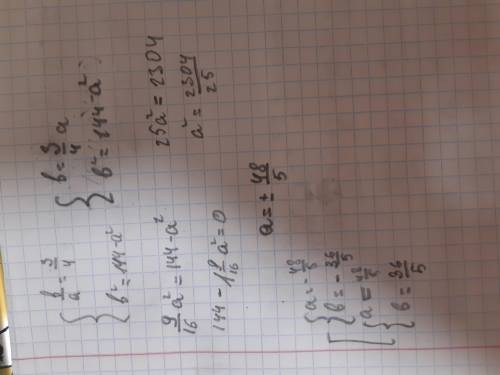 { b/a = 3/4
{ b² = 144-a²
{ b = 3/4 a
{ b² = 144-a²
9/16 a² = 144-a²
144 - 1 9/16 a² = 0
25a² = 2304
a² = 2304/25
a = ± 48/5
[ { a = -48/5
{ b = -36/5
{ a = 48/5
{ b = 36/5